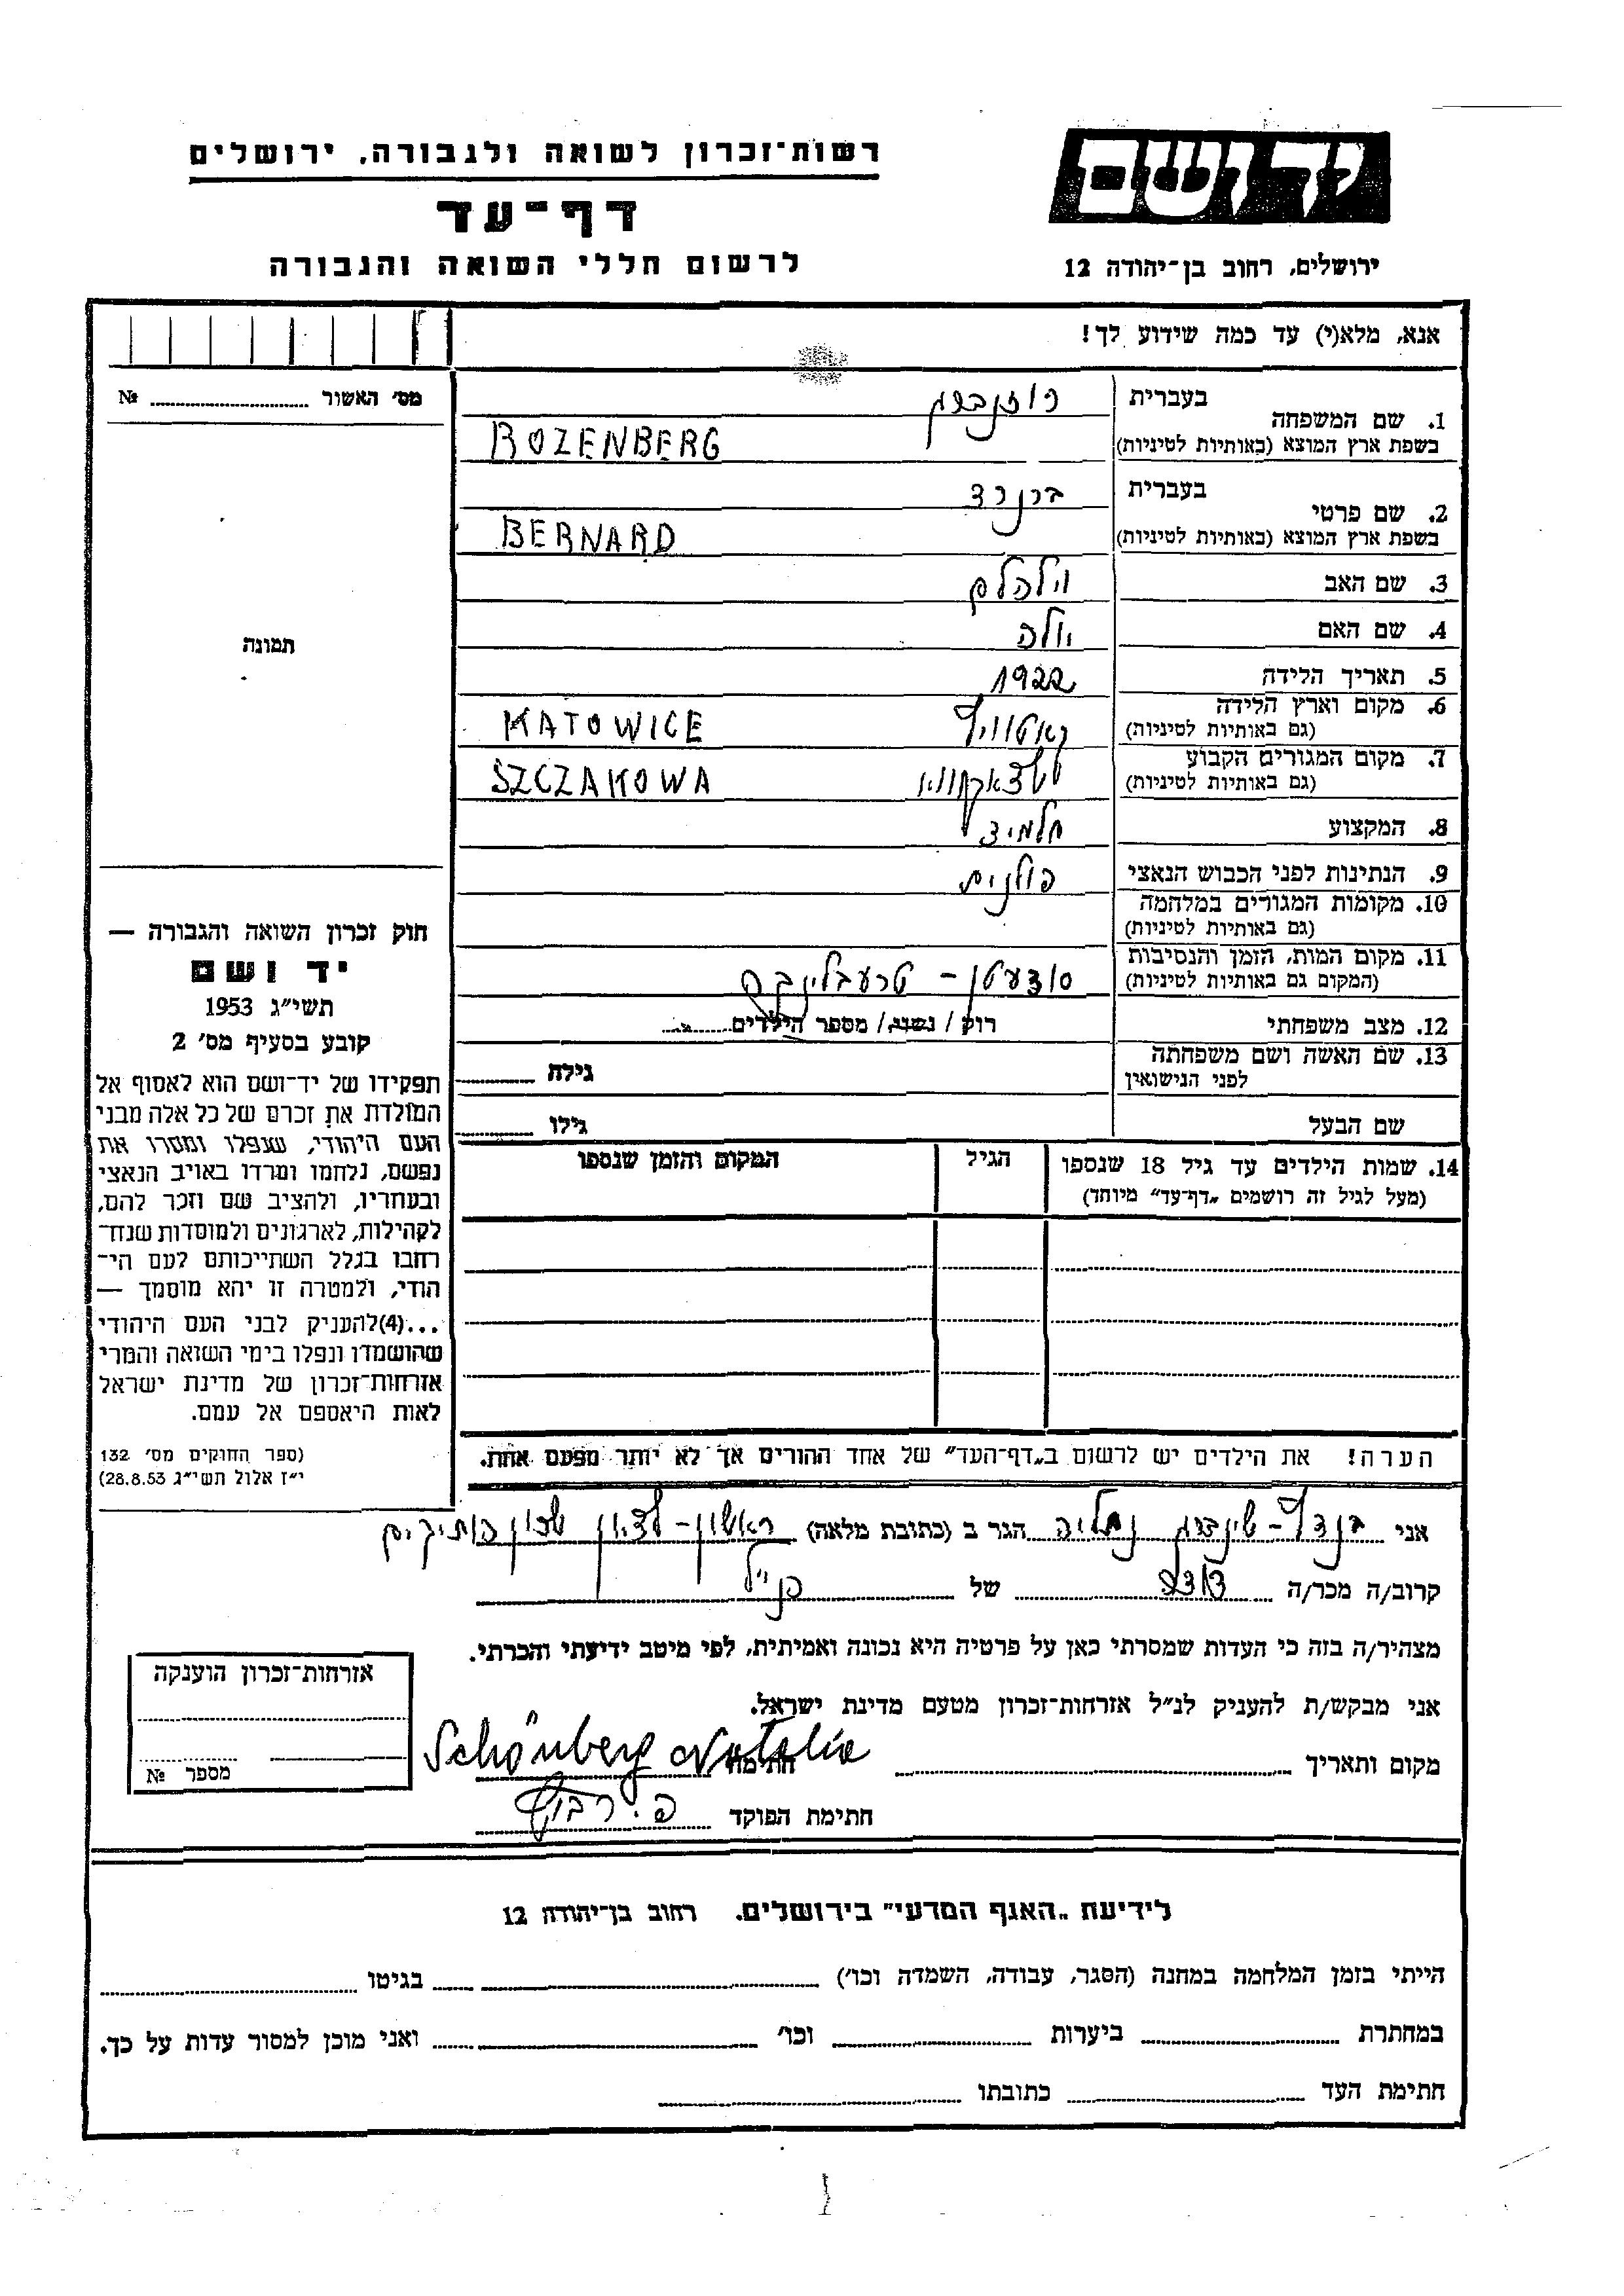 רשות־זכרון לשואה ולגבורה, ירושלים
יד ושם
דף־עד
ירושלים, רחוב בן־יהודה 12
לרשום חללי השואה והגבורה
אנא, מלא(י) עד כמה שידוע לך!
מס׳ האשור № 
תמונה
1. שם המשפחה
בעברית רוזנברג
בשפת ארץ המוצא (באותיות לטיניות) ROZENBERG
2. שם פרטי
בעברית ברנרד
בשפת ארץ המוצא (באותיות לטיניות) BERNARD
3. שם האב וילהלם
4. שם האם
5. תאריך הלידה 1922
6. מקום וארץ הלידה
(גם באותיות לטיניות) KATOWICE
7. מקום המגורים הקבוע
(גם באותיות לטיניות) SZCZAKOWA
8. המקצוע תלמיד
9. הנתינות לפני הכבוש הנאצי פולנית
10. מקומות המגורים במלחמה
(גם באותיות לטיניות)
11. מקום המות, הזמן והנסיבות
(המקום גם באותיות לטיניות)
12. מצב משפחתי רוק / נשוי / מספר הילדים
13. שם האשה ושם משפחתה
לפני הנישואין גילה
שם הבעל גילו
14. שמות הילדים עד גיל 18 שנספו הגיל המקום והזמן שנספו
(מעל לגיל זה רושמים „דף־עד״ מיוחד)
הערה! את הילדים יש לרשום ב„דף־העד״ של אחד ההורים אך לא יותר מפעם אחת.
חוק זכרון השואה והגבורה —
יד ושם
תשי״ג 1953
קובע בסעיף מס׳ 2
תפקידו של יד־ושם הוא לאסוף אל
המולדת את זכרם של כל אלה מבני
העם היהודי, שנפלו ומסרו את
נפשם, נלחמו ומרדו באויב הנאצי
ובעוזריו, ולהציב שם וזכר להם,
לקהילות, לארגונים ולמוסדות שנח־
רחבו בגלל השתייכותם לעם הי־
הודי, ולמטרה זו יהא מוסמך —
...(4)להעניק לבני העם היהודי
שהושמדו ונפלו בימי השואה והמרי
אזרחות־זכרון של מדינת ישראל
לאות היאספם אל עמם.
(ספר החוקים מס׳ 132
י״ז אלול תשי״ג 28.8.53)
אני נתליה הגר ב (כתובת מלאה) ראשון-לציון שכון ותיקים
קרוב/ה מכר/ה דודה של הנ״ל
מצהיר/ה בזה כי העדות שמסרתי כאן על פרטיה היא נכונה ואמיתית, לפי מיטב ידיעתי והכרתי.
אני מבקש/ת להעניק לנ״ל אזרחות־זכרון מטעם מדינת ישראל.
מקום ותאריך חתימה Schönberg Natalia
חתימת הפוקד
אזרחות־זכרון הוענקה
מספר №
לידיעת „האגף המדעי״ בירושלים. רחוב בן־יהודה 12
הייתי בזמן המלחמה במחנה (הסגר, עבודה, השמדה וכו׳) בגיטו
במחתרת ביערות וכו׳ ואני מוכן למסור עדות על כך.
חתימת העד כתובתו